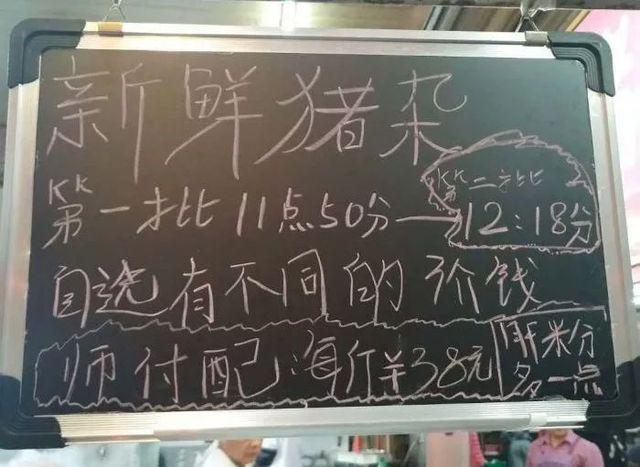 新鲜猪杂
第一批 11点50分
第二批
12:18分
自选有不同的价钱
师付配 海仔¥38元
多一点